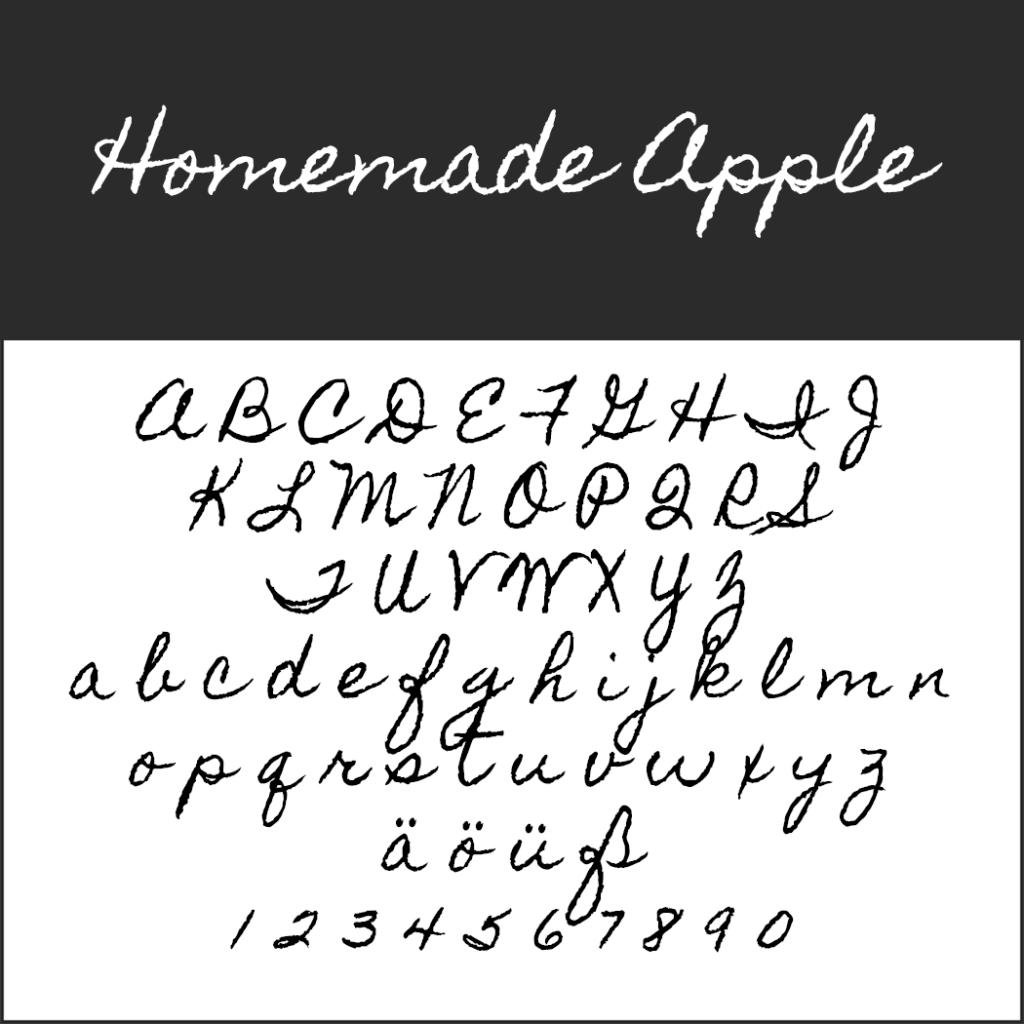 Homemade Apple
A B C D E F G H I J
K L M N O P Q R S
T U V W X Y Z
a b c d e f g h i j k l m n
o p q r s t u v w x y z
ä ö ü ß
1 2 3 4 5 6 7 8 9 0